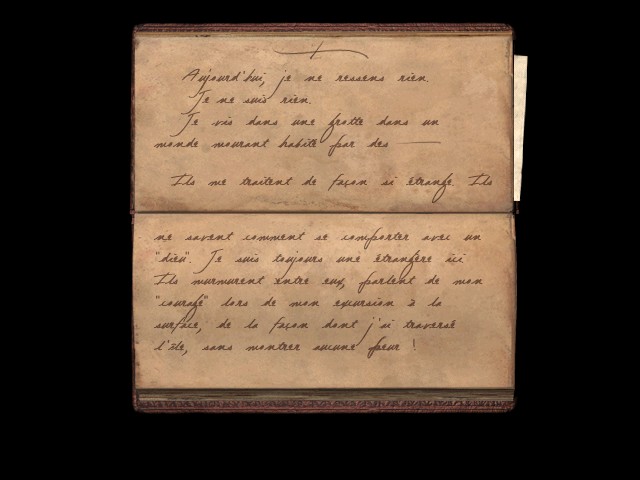 Aujourd'hui, je ne ressens rien.
Je ne suis rien.
Je vis dans une grotte dans un
monde mourant habité par des ——
Ils me traitent de façon si étrange. Ils
ne savent comment se comporter avec un
"dieu". Je suis toujours une étrangère ici
Ils murmurent entre eux, parlent de mon
"courage" lors de mon excursion à la
surface, de la façon dont j'ai traversé
l'île, sans montrer aucune peur !